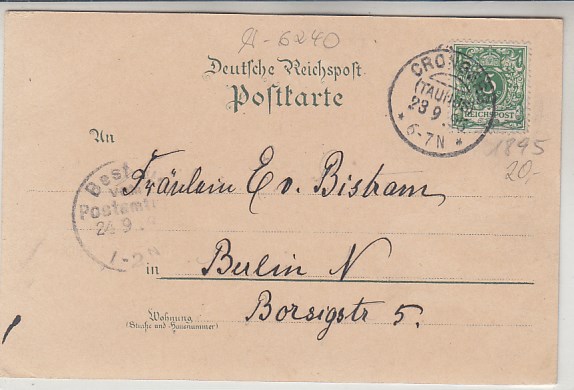 A-6240
Deutsche Reichspost
Postkarte
CRONBERG
(TAUNUS)
23 9
* 6-7N *
5
REICHSPOST
1895
20,-
An
Fräulein E v. Bistram
Best
v
Postamt
24 9
1-2 N
in
Berlin N
Wohnung
(Straße und Hausnummer)
Borsigstr 5.